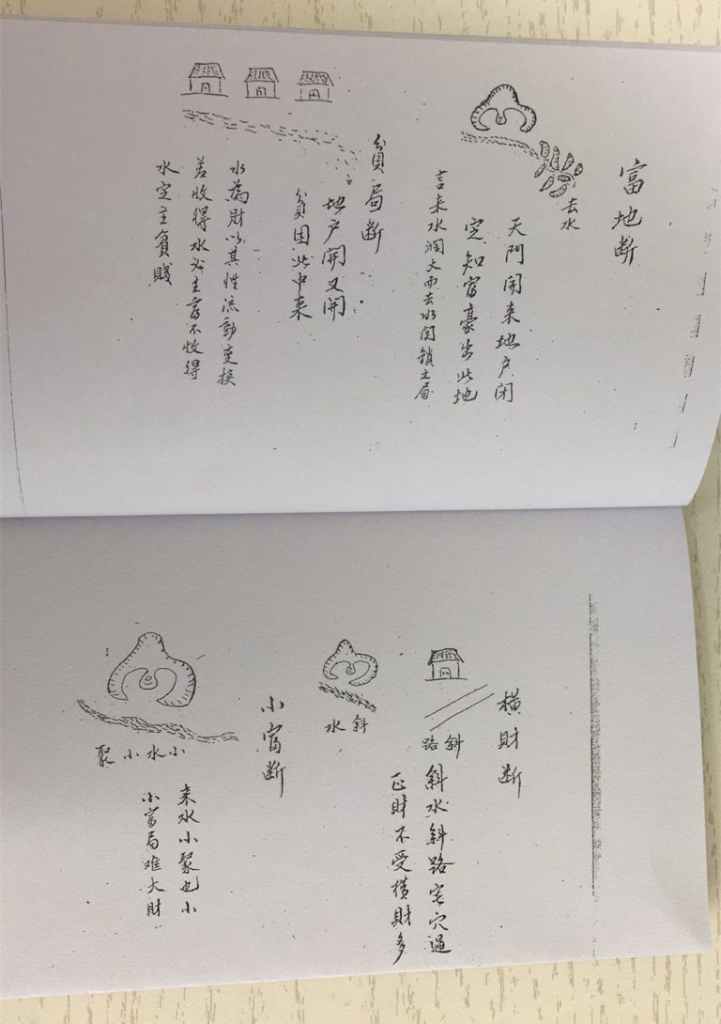 富地断
去水
天門開来地户闭
定知富豪出此地
言来水濶大而去水関鎖之局
貧局断
地户開又開
貧困此中来
水為財以其性流動变换
若收得水必主富不收得
水定主貧賤
横財断
斜路
斜水斜路宅穴過
正財不受横財多
斜水
小富断
小水小聚
来水小聚也小
小富局难大財